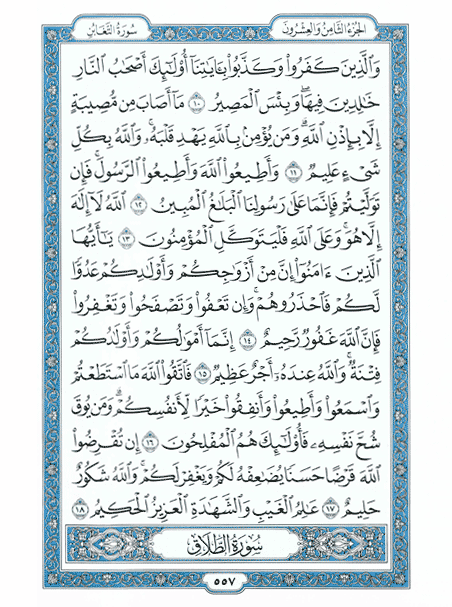 الجزء الثامن والعشرون سورة التغابن
وَٱلَّذِينَ كَفَرُواْ وَكَذَّبُواْ بِـَٔايَٰتِنَآ أُوْلَٰٓئِكَ أَصۡحَٰبُ ٱلنَّارِ
خَٰلِدِينَ فِيهَاۖ وَبِئۡسَ ٱلۡمَصِيرُ ١٠ مَآ أَصَابَ مِن مُّصِيبَةٍ
إِلَّا بِإِذۡنِ ٱللَّهِۗ وَمَن يُؤۡمِنۢ بِٱللَّهِ يَهۡدِ قَلۡبَهُۥۚ وَٱللَّهُ بِكُلِّ
شَيۡءٍ عَلِيمٞ ١١ وَأَطِيعُواْ ٱللَّهَ وَأَطِيعُواْ ٱلرَّسُولَۚ فَإِن
تَوَلَّيۡتُمۡ فَإِنَّمَا عَلَىٰ رَسُولِنَا ٱلۡبَلَٰغُ ٱلۡمُبِينُ ١٢ ٱللَّهُ لَآ إِلَٰهَ
إِلَّا هُوَۚ وَعَلَى ٱللَّهِ فَلۡيَتَوَكَّلِ ٱلۡمُؤۡمِنُونَ ١٣ يَٰٓأَيُّهَا
ٱلَّذِينَ ءَامَنُوٓاْ إِنَّ مِنۡ أَزۡوَٰجِكُمۡ وَأَوۡلَٰدِكُمۡ عَدُوّٗا
لَّكُمۡ فَٱحۡذَرُوهُمۡۚ وَإِن تَعۡفُواْ وَتَصۡفَحُواْ وَتَغۡفِرُواْ
فَإِنَّ ٱللَّهَ غَفُورٞ رَّحِيمٌ ١٤ إِنَّمَآ أَمۡوَٰلُكُمۡ وَأَوۡلَٰدُكُمۡ
فِتۡنَةٞۚ وَٱللَّهُ عِندَهُۥٓ أَجۡرٌ عَظِيمٞ ١٥ فَٱتَّقُواْ ٱللَّهَ مَا ٱسۡتَطَعۡتُمۡ
وَٱسۡمَعُواْ وَأَطِيعُواْ وَأَنفِقُواْ خَيۡرٗا لِّأَنفُسِكُمۡۗ وَمَن يُوقَ
شُحَّ نَفۡسِهِۦ فَأُوْلَٰٓئِكَ هُمُ ٱلۡمُفۡلِحُونَ ١٦ إِن تُقۡرِضُواْ
ٱللَّهَ قَرۡضًا حَسَنٗا يُضَٰعِفۡهُ لَكُمۡ وَيَغۡفِرۡ لَكُمۡۚ وَٱللَّهُ شَكُورٌ
حَلِيمٌ ١٧ عَٰلِمُ ٱلۡغَيۡبِ وَٱلشَّهَٰدَةِ ٱلۡعَزِيزُ ٱلۡحَكِيمُ ١٨
سورة الطلاق
٥٥٧